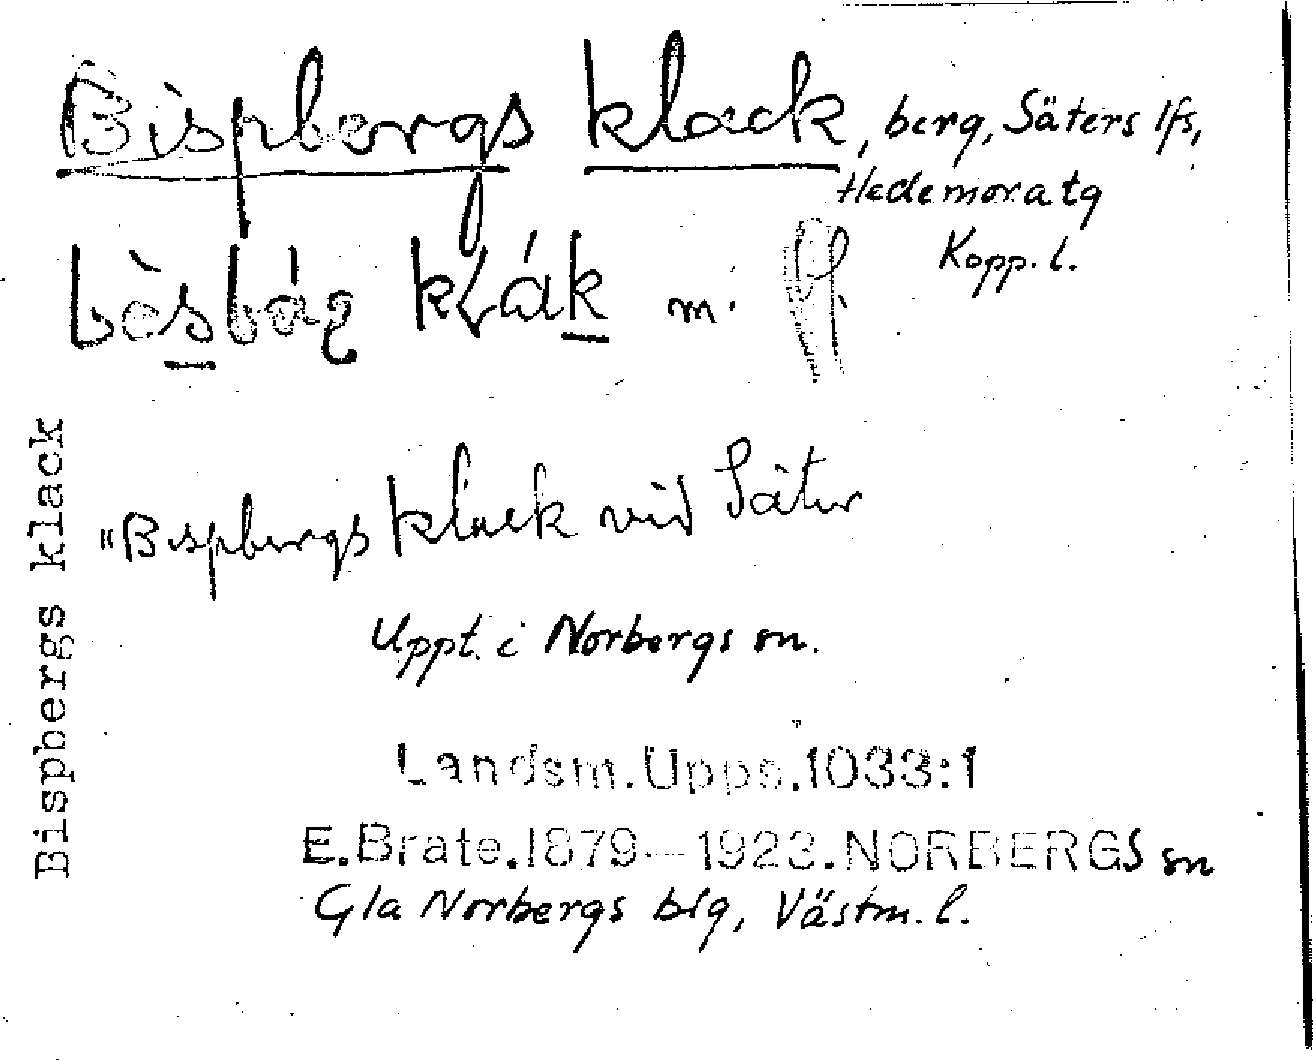 Bispbergs klack, berg, Säters lfs,
Hedemora tg
Kopp. l.
klák m.
Bispbergs klack
"Bispbergs klack vid Säter
Uppt. i Norbergs sn.
Landsm.Upps.1033:1
E.Brate.1879—1923.NORBERGS sn
Gla Norbergs blg, Västm. l.